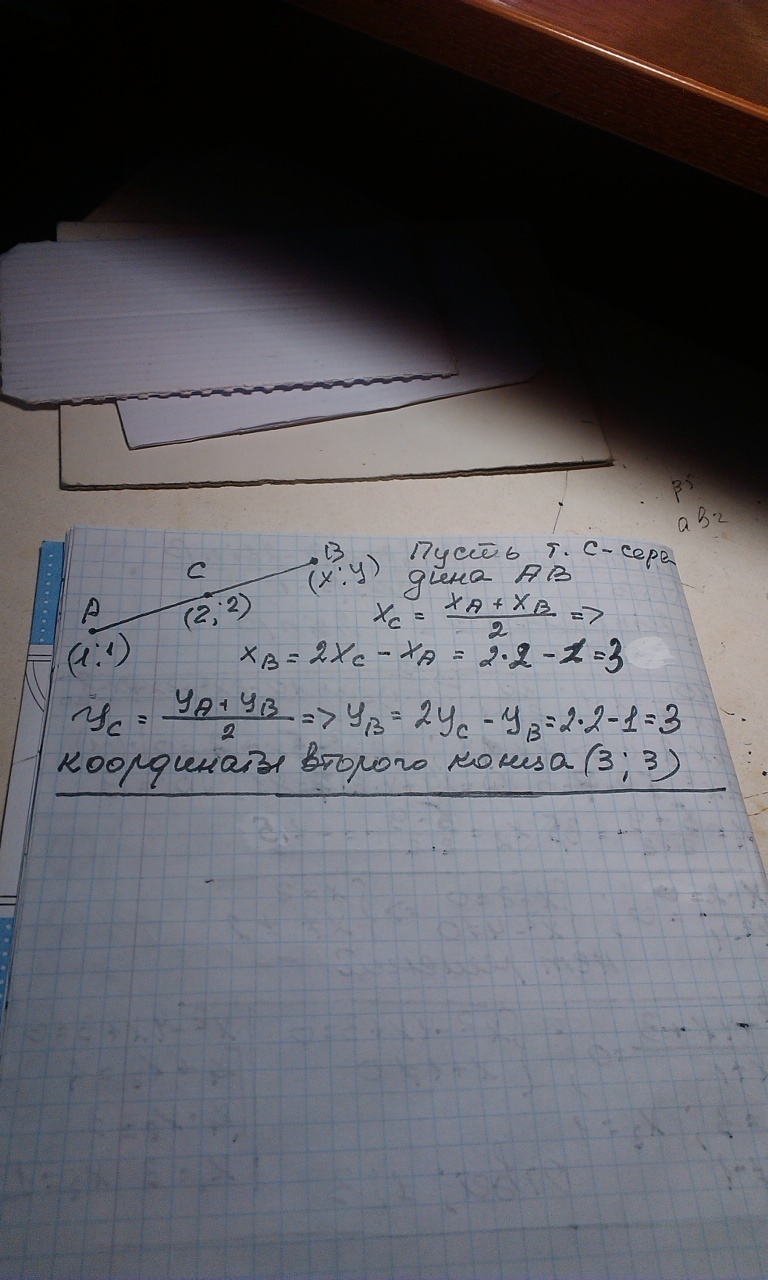 B Пусть т. С-сере
C (x;y) дина АВ
A (2;2) x_C = (x_A + x_B)/2 =>
(1;1) x_B = 2x_C - x_A = 2·2 - 1 = 3
y_C = (y_A + y_B)/2 => y_B = 2y_C - y_B = 2·2-1=3
координаты второго конца (3; 3)